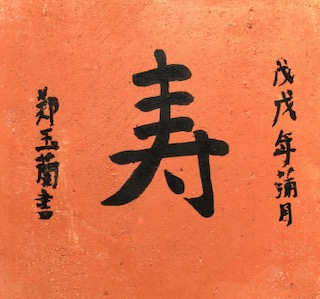 戊戌年蒲月
寿
郑玉蘭書